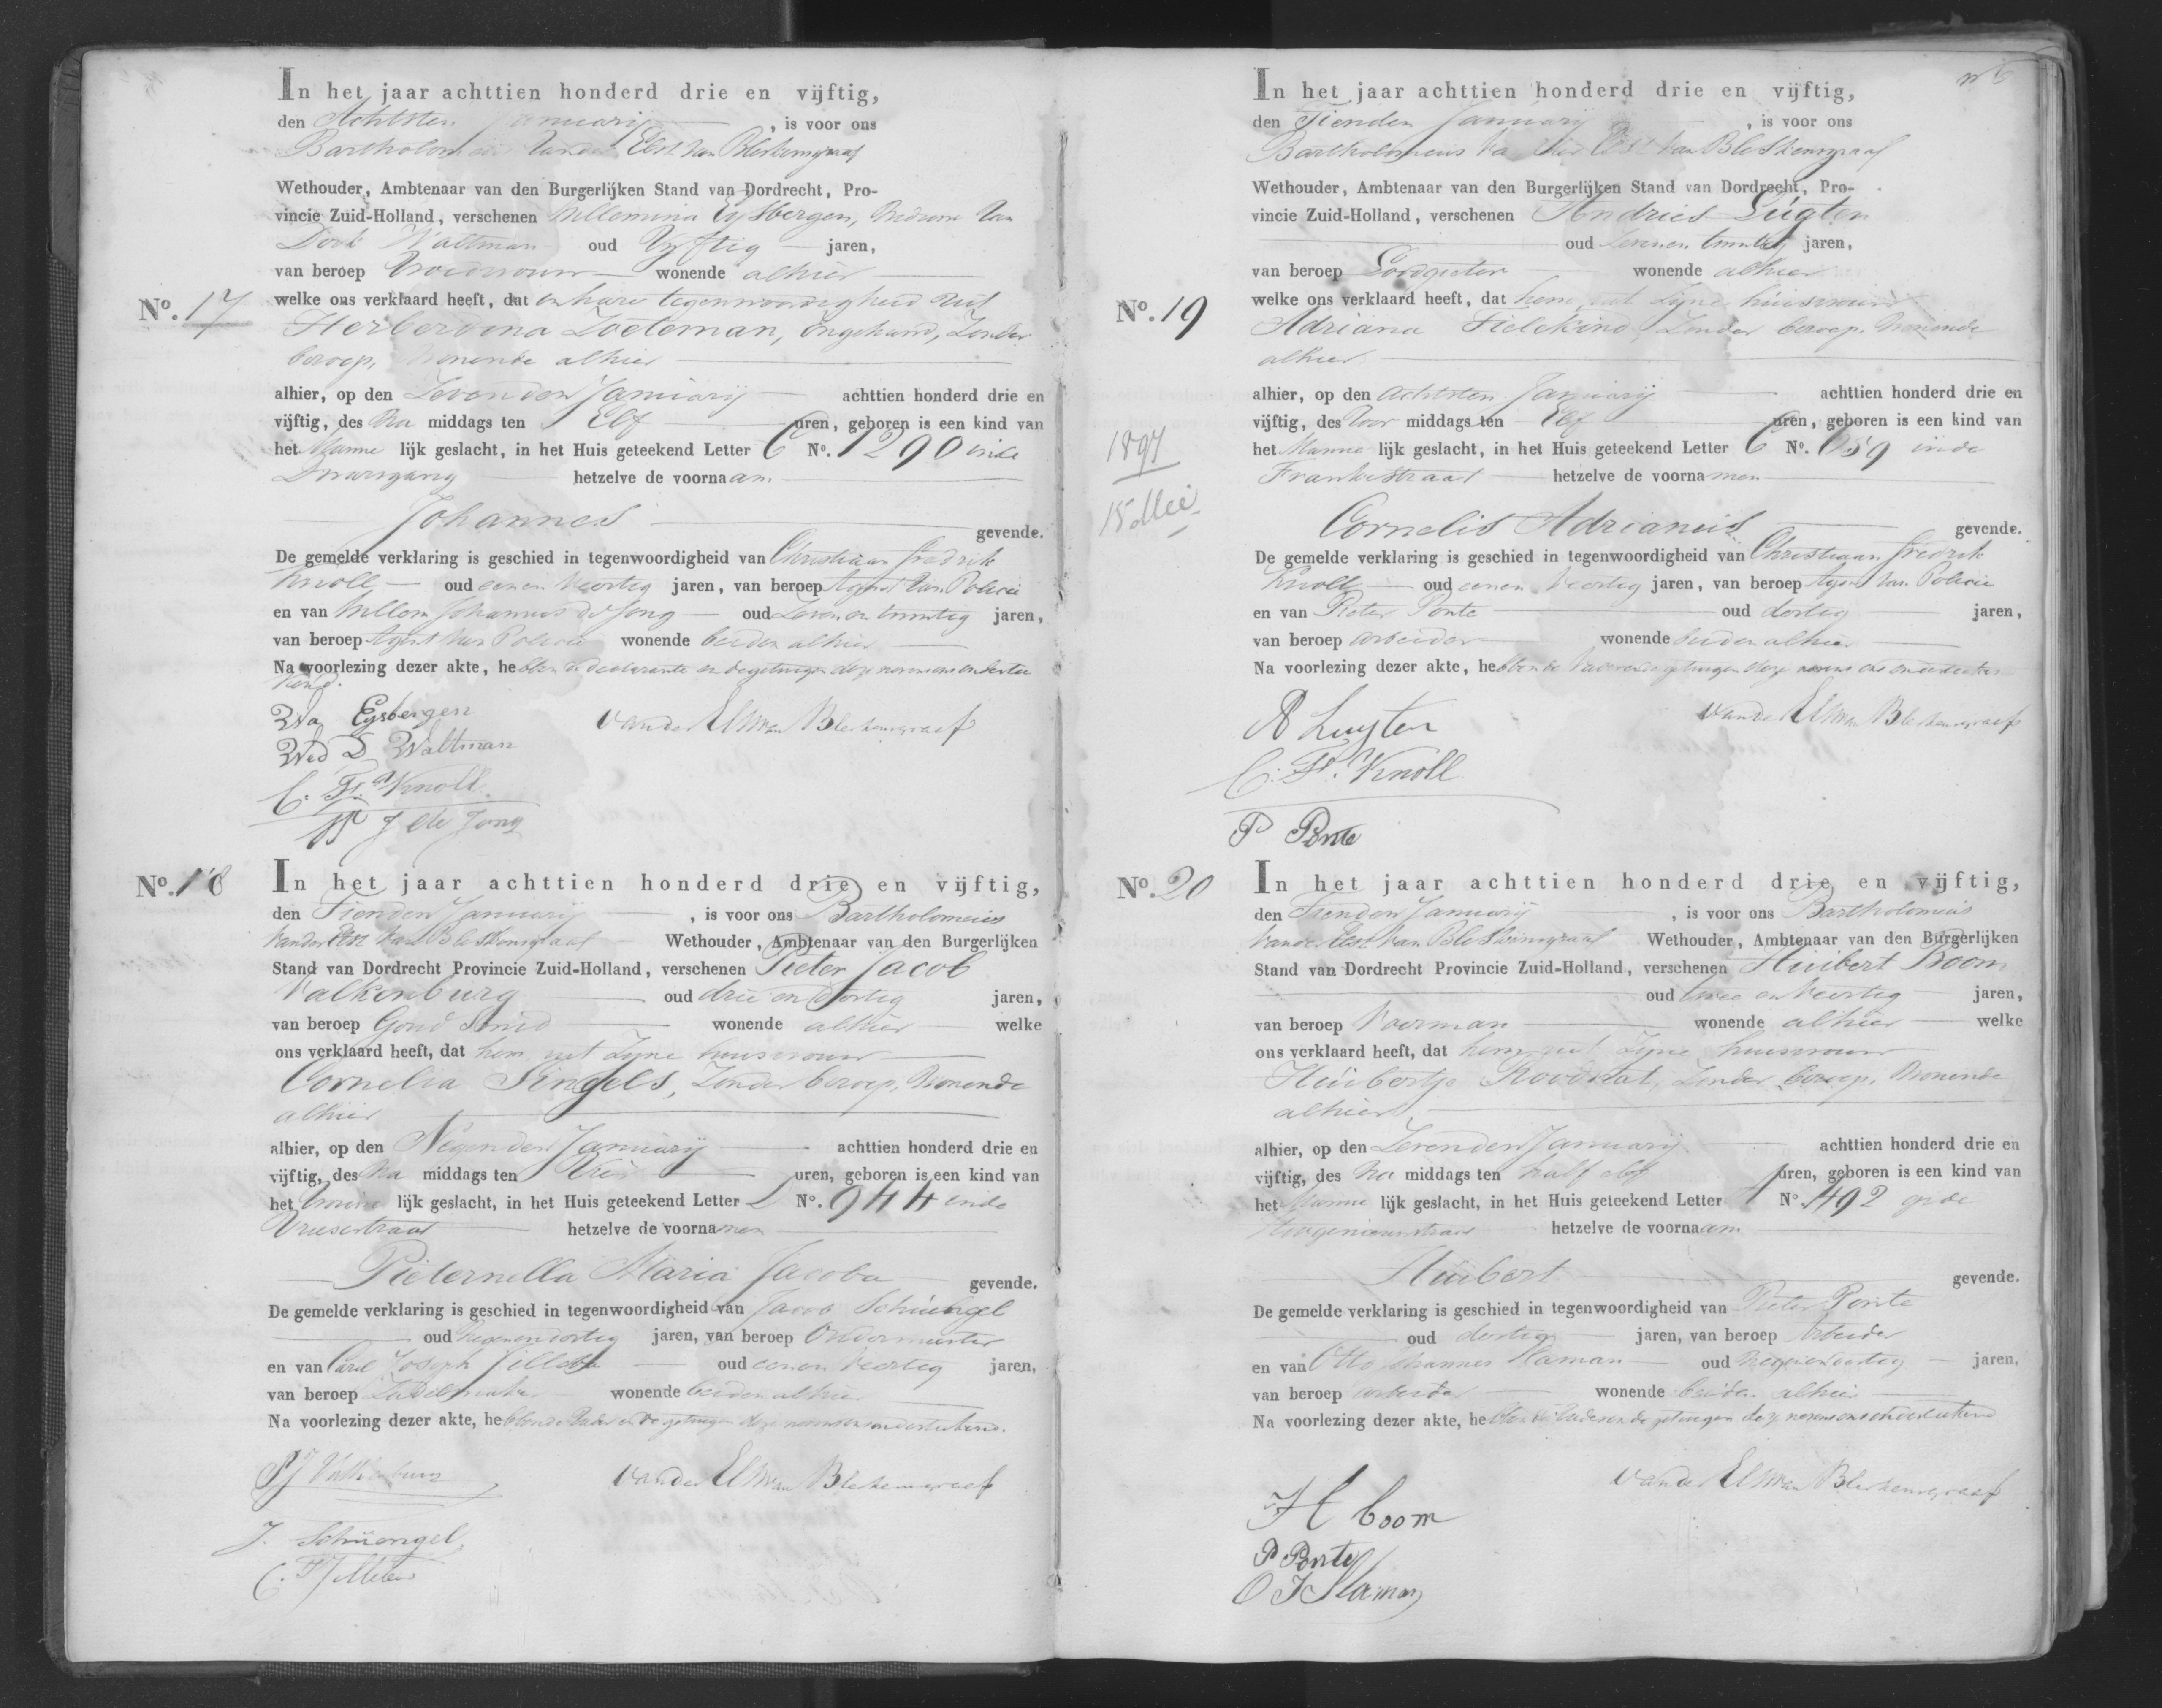 In het jaar achttien honderd drie en vijftig,
den Achtsten Januarij, is voor ons
Bartholomeus van der Elst van Bleskensgraaf
Wethouder, Ambtenaar van den Burgerlijken Stand van Dordrecht, Pro-
vincie Zuid-Holland, verschenen Willemina Eijsbergen, Weduwe van
Dirk Waltman oud Vijftig jaren,
van beroep Vroedvrouw wonende alhier
No. 17
welke ons verklaard heeft, dat in hare tegenwoordigheid uit
Herberdina Zoeteman, ongehuwd, Zonder
beroep, wonende alhier
alhier, op den Zevenden Januarij achttien honderd drie en
vijftig, des Na middags ten Elf uren, geboren is een kind van
het Manne lijk geslacht, in het Huis geteekend Letter C No. 1290 in de
hetzelve de voornaam
Johannes gevende.
De gemelde verklaring is geschied in tegenwoordigheid van Christiaan Fredrik
Knoll oud een en Veertig jaren, van beroep Agent van Policie
en van Willem Johannes de Jong oud Zeven en twintig jaren,
van beroep Agent van Policie wonende beiden alhier
Na voorlezing dezer akte, hebben de declarante en de getuigen deze nevens ons onderte
kend.
Wa Eijsbergen
Wed D Waltman
van der Elst van Bleskensgraaf
C. Fk. Knoll
W J de Jong
No. 18
In het jaar achttien honderd drie en vijftig,
den Tienden Januarij, is voor ons Bartholomeus
van der Elst van Bleskensgraaf Wethouder, Ambtenaar van den Burgerlijken
Stand van Dordrecht Provincie Zuid-Holland, verschenen Pieter Jacob
Valkenburg oud drie en dertig jaren,
van beroep Goud Smid wonende alhier welke
ons verklaard heeft, dat hem uit Zijne huisvrouw
Cornelia Singels, Zonder beroep, wonende
alhier
alhier, op den Negenden Januarij achttien honderd drie en
vijftig, des Na middags ten Drie uren, geboren is een kind van
het Vrouwe lijk geslacht, in het Huis geteekend Letter D No. 944 in de
Vriesestraat hetzelve de voornamen
Pieternella Maria Jacoba gevende.
De gemelde verklaring is geschied in tegenwoordigheid van Jacob Schüengel
oud Negen en dertig jaren, van beroep Ondermeester
en van Carel Joseph oud een en Veertig jaren,
van beroep Zadelmaker wonende beiden alhier
Na voorlezing dezer akte, hebben de Vader en de getuigen deze nevens ons onderteekend.
PJ Valkenburg
van der Elst van Bleskensgraaf
J. Schüengel
In het jaar achttien honderd drie en vijftig,
den Tienden Januarij, is voor ons
Bartholomeus van der Elst van Bleskensgraaf
Wethouder, Ambtenaar van den Burgerlijken Stand van Dordrecht, Pro-
vincie Zuid-Holland, verschenen Andries Lugten
oud Zeven en twintig jaren,
van beroep Loodgieter wonende alhier
No. 19
welke ons verklaard heeft, dat hem uit Zijne huisvrouw
Adriana Zonder beroep, wonende
alhier
alhier, op den Achtsten Januarij achttien honderd drie en
vijftig, des Voor middags ten Elf uren, geboren is een kind van
het Manne lijk geslacht, in het Huis geteekend Letter C No. 659 in de
Frankestraat hetzelve de voornamen
1897
15 Mei
Cornelis Adrianus gevende.
De gemelde verklaring is geschied in tegenwoordigheid van Christiaan Fredrik
Knoll oud een en Veertig jaren, van beroep Agent van Policie
en van Pieter Ponte oud dertig jaren,
van beroep arbeider wonende beiden alhier
Na voorlezing dezer akte, hebben de Vader en de getuigen deze nevens ons onderteekend
A Luyten
van der Elst van Bleskensgraaf
C. Fk. Knoll
P Ponte
No. 20
In het jaar achttien honderd drie en vijftig,
den Tienden Januarij, is voor ons Bartholomeus
van der Elst van Bleskensgraaf Wethouder, Ambtenaar van den Burgerlijken
Stand van Dordrecht Provincie Zuid-Holland, verschenen Huibert Boom
oud twee en Veertig jaren,
van beroep Voerman wonende alhier welke
ons verklaard heeft, dat hem uit Zijne huisvrouw
Huibertje Zonder beroep, wonende
alhier,
alhier, op den Zevenden Januarij achttien honderd drie en
vijftig, des Na middags ten half elf uren, geboren is een kind van
het Manne lijk geslacht, in het Huis geteekend Letter No. 492 op de
hetzelve de voornaam
Huibert gevende.
De gemelde verklaring is geschied in tegenwoordigheid van Pieter Ponte
oud dertig jaren, van beroep Arbeider
en van Otto Johannes Slaman oud jaren,
van beroep arbeider wonende beiden alhier
Na voorlezing dezer akte, hebben de Vader en de getuigen deze nevens ons onderteekend
van der Elst van Bleskensgraaf
H boom
P Ponte
O J Slaman